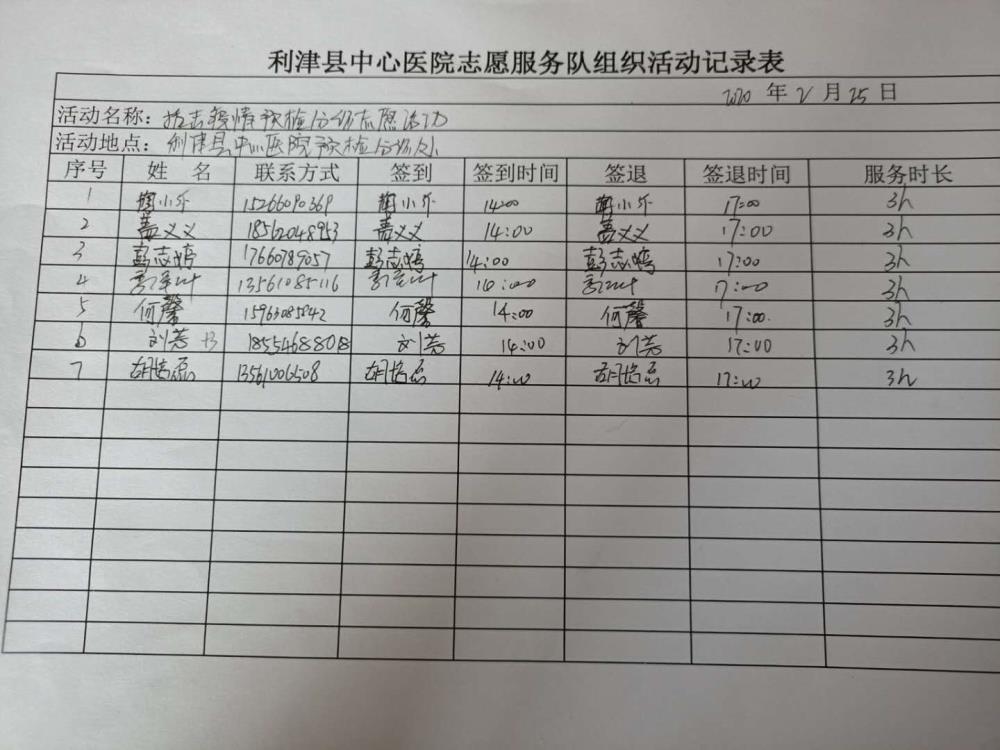 利津县中心医院志愿服务队组织活动记录表
2020 年 2 月 25 日
活动名称: 抗击疫情预检分诊志愿活动
活动地点: 利津县中心医院预检分诊处
序号 姓 名 联系方式 签到 签到时间 签退 签退时间 服务时长
1 小乐 15266090369 小乐 14:00 小乐 17:00 3h
2 盖义义 18562048953 盖义义 14:00 盖义义 17:00 3h
3 彭志娟 17660789057 彭志娟 14:00 彭志娟 17:00 3h
4 13561085116 17:00 3h
5 何馨 何馨 14:00 何馨 17:00 3h
6 刘芳 刘芳 14:00 刘芳 17:00 3h
7 13561006508 14:00 17:00 3h